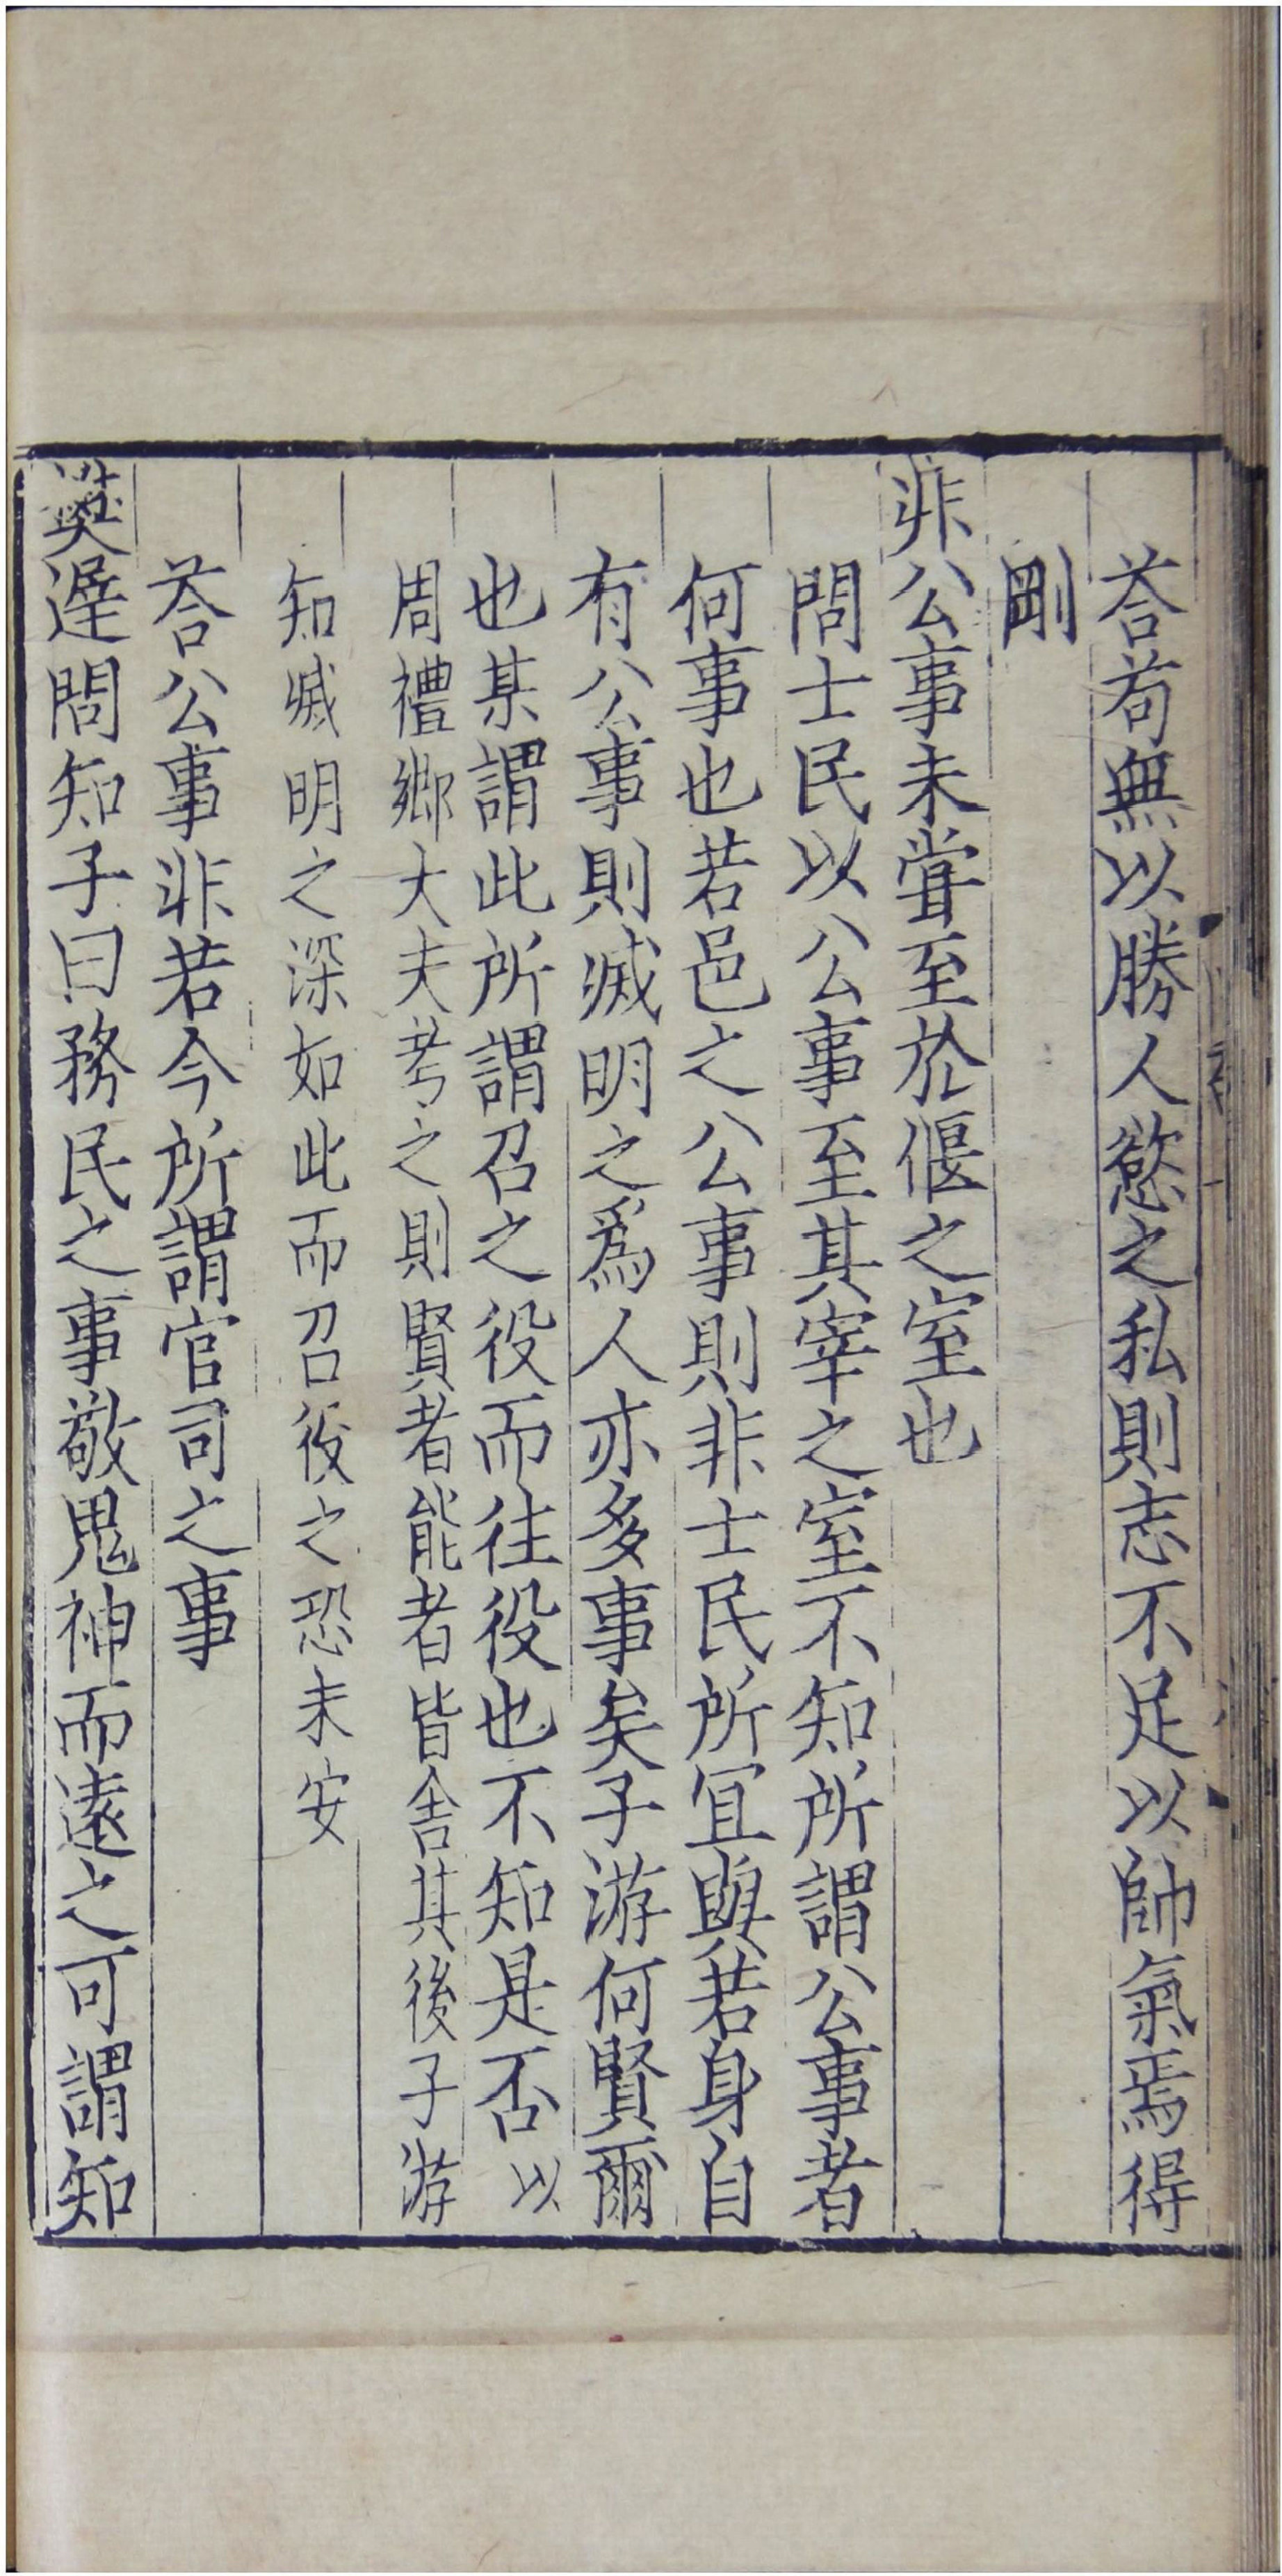 荅苟無以勝人慾之私則志不足以帥氣焉得
剛
非公事未甞至於偃之室也
問士民以公事至其宰之室不知所謂公事者
何事也若邑之公事則非士民所宜與若身自
有公事則滅明之爲人亦多事矣子游何賢爾
也某謂此所謂召之役而往役也不知是否以
周禮鄉大夫考之則賢者能者皆舍其後子游
知滅明之深如此而召役之恐未安
荅公事非若今所謂官司之事
樊遲問知子曰務民之事敬鬼神而遠之可謂知